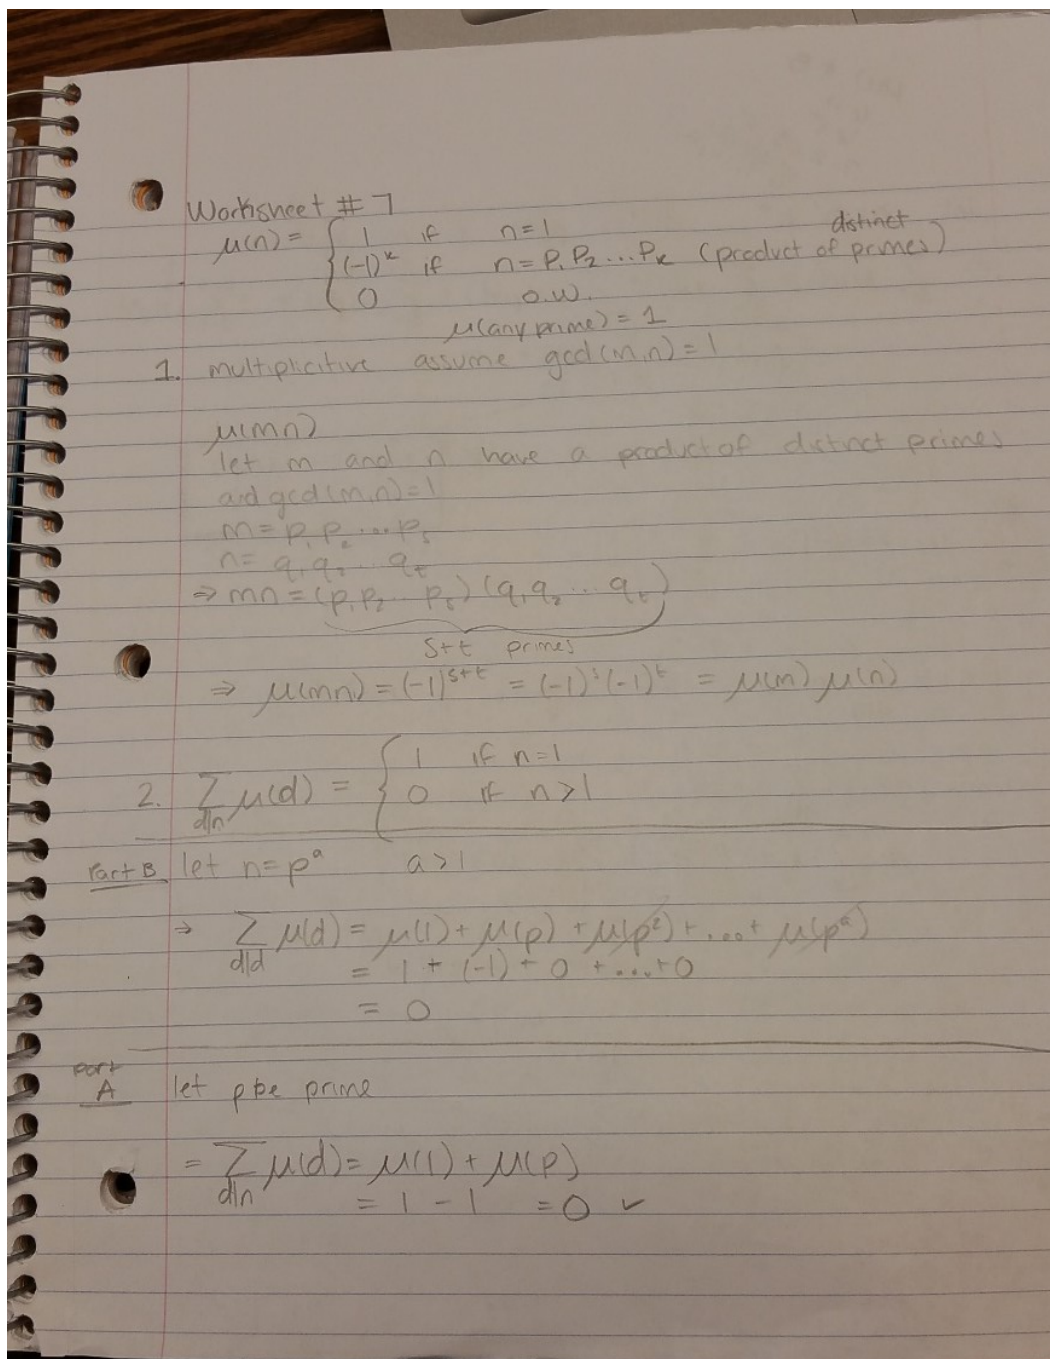 Worksheet #7
μ(n) = { 1 if n=1 distinct
(-1)^k if n=p₁p₂...pₖ (product of primes)
0 o.w.
μ(any prime) = 1
1. multiplicitive assume gcd(m,n)=1
μ(mn)
let m and n have a product of distinct primes
and gcd(m,n)=1
m=p₁p₂...pₛ
n=q₁q₂...qₜ
⇒ mn=(p₁p₂...pₛ)(q₁q₂...qₜ)
s+t primes
⇒ μ(mn)=(-1)^(s+t) = (-1)^s(-1)^t = μ(m)μ(n)
2. Σ_{d|n} μ(d) = { 1 if n=1
0 if n>1
Part B let n=p^a a>1
⇒ Σ_{d|d} μ(d) = μ(1)+μ(p)+μ(p²)+...+μ(p^a)
= 1 + (-1) + 0 +...+0
= 0
Part A let p be prime
= Σ_{d|n} μ(d) = μ(1) + μ(p)
= 1 - 1 = 0 ✓